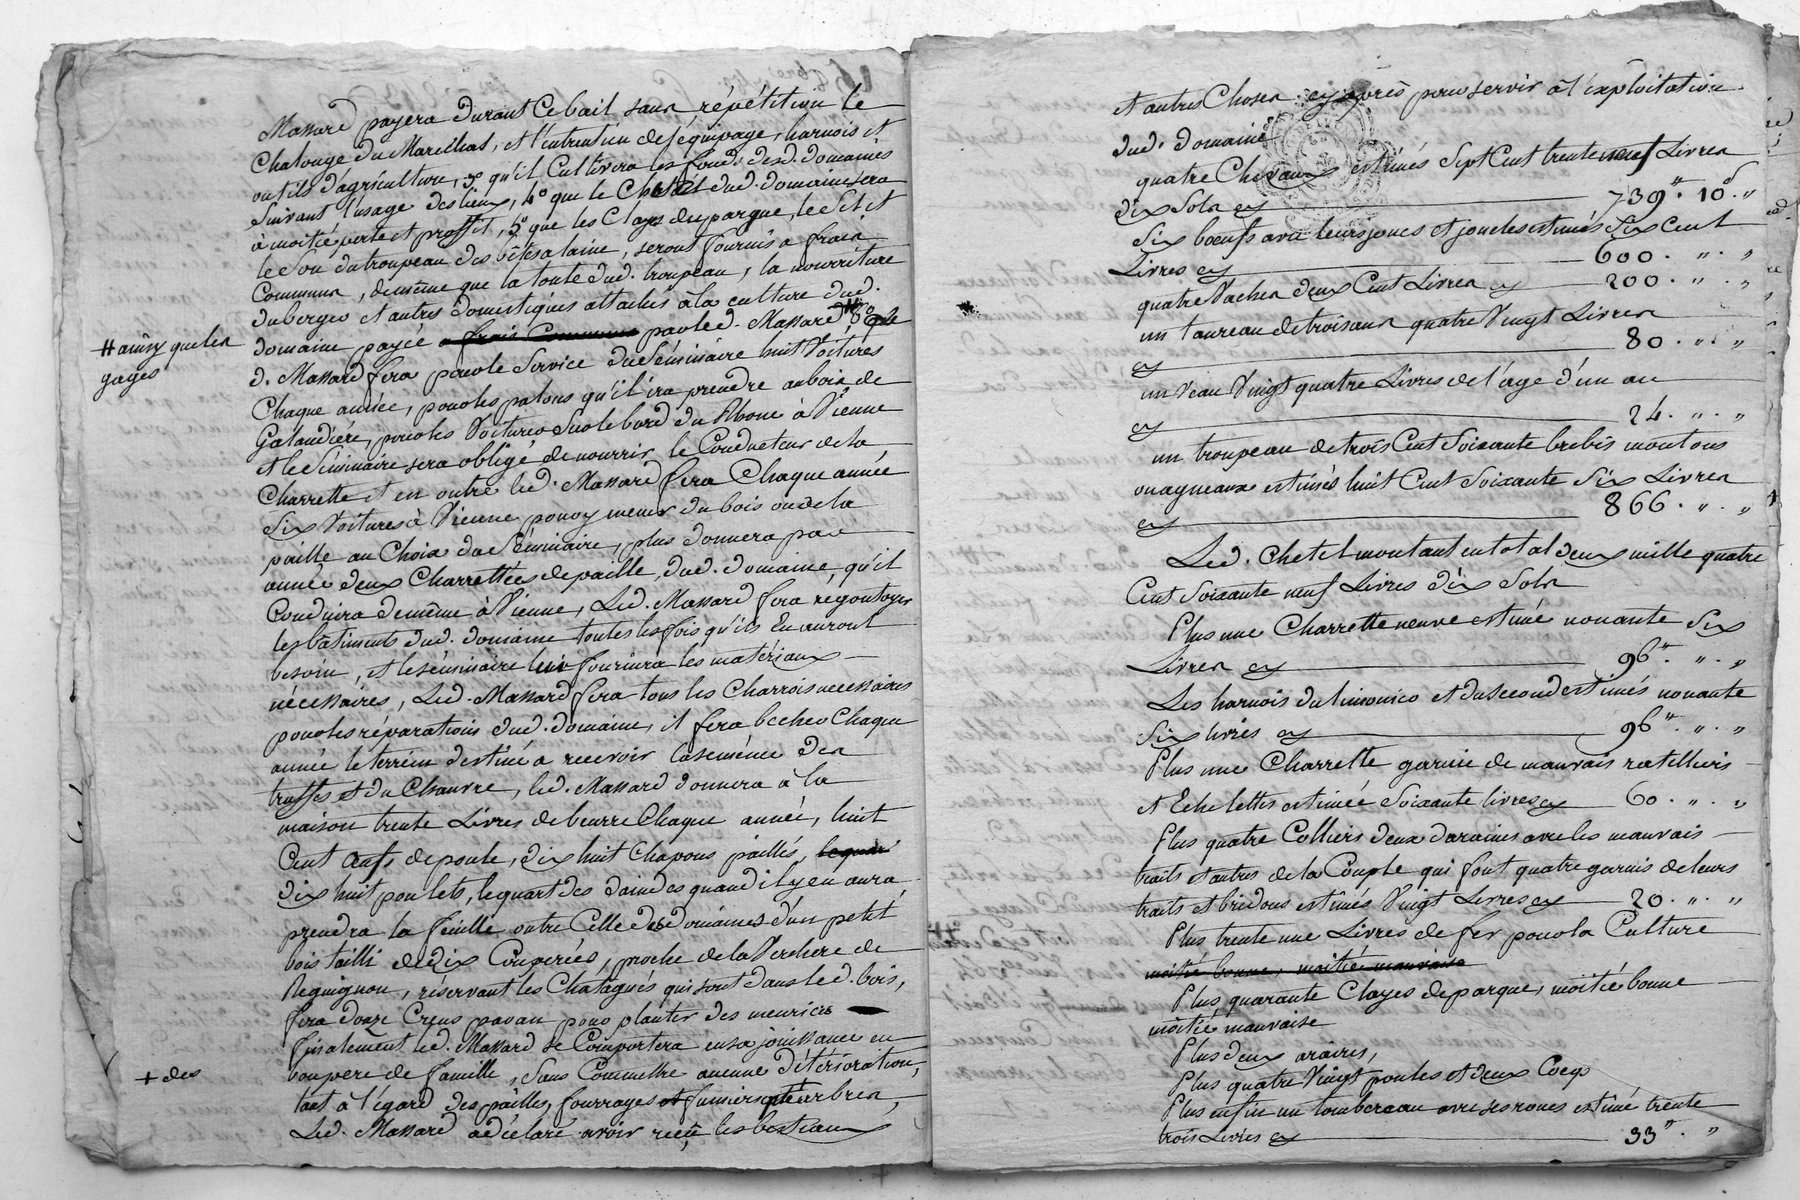 Massard payera durant Ce bail sans répétition le
Chalonge du Marechal, et l'entretien de l'équipage, harnois et
outils d'agriculture, 3° qu'il Cultivera les fonds desd. domaines
Suivant l'usage des lieux, 4° que le Chetel dud. domaine sera
à moitié perte et proffit, 5° que les Clayes du parque, le Sel et
le Son du troupeau des bêtes a laine, seront fournis a frais
Communs, de même que la tonte dud. troupeau, la nourriture
du berger et autres domestiques attachés à la culture dud.
domaine payée a frais Communs par led. Massard # 6° que le
# ainsy que les
gages
d. Massard fera pour le Service du Séminaire huit Voitures
Chaque année, pour les patons qu'il ira prendre au bois de
Galaudiére, pour les Voiturer Sur le bord du Rhone à Vienne
et le Séminaire sera obligé de nourrir le Conducteur de la
Charrette et en outre led. Massard fera Chaque année
Six Voitures à Vienne pour y mener du bois ou de la
paille au Choix du Séminaire, plus donnera par
année deux Charrettées de paille, dud. domaine, qu'il
Conduira de même à Vienne, Led. Massard fera regoutoyer
les bâtiments dud. domaine toutes les fois qu'ils En auront
besoin, et le séminaire lui fournira les materiaux
nécessaires, Led. Massard fera tous les Charrois necessaires
pour les réparations dud. domaine, il fera becher Chaque
année le terrein destiné a recevoir la semence des
truffes et du Chanvre, led. Massard donnera à la
maison trente Livres de beurre Chaque année, huit
Cent Oeufs de poule, dix huit Chapons paillés, le quar
dix huit poulets, le quart des daindes quand il y en aura
prendra la feuille outre Celle des domaines d'un petit
bois tailli de dix Couperées, proche de la Verchere de
Reguignon, réservant les Châtagnés qui sont dans led. bois,
fera douze Creus par an pour planter des meuriers
finalement led. Massard se Comportera en sa joüissance en
bon pere de famille, Sans Commettre aucune détérioration,
+ des
tant à l'égard des pailles, fourrages et fumiers + arbres,
Led. Massard a déclaré avoir reçu les bestiaux
et autres Choses cy après pour servir à l'exploitation
dud. domaine
quatre Chevaux estimés Sept Cent trente neuf Livres
dix Sols cy 739ᴸ. 10ˢ. "
Six boeufs avec leurs joucs et joucles estimés Six Cent
Livres cy 600. ". "
quatre Vaches deux Cent Livres cy 200. ". "
un taureau de trois ans quatre Vingt Livres
cy 80. ". "
un Veau Vingt quatre Livres de l'age d'un an
cy 24. ". "
un troupeau de trois Cent Soixante brebis moutons
ou agneaux estimés huit Cent Soixante Six Livres
cy 866. ". "
Led. Chetel montant en total deux mille quatre
Cent Soixante neuf Livres dix Sols
Plus une Charrette neuve estimé nonante Six
Livres cy 96ᴸ. ". "
Les harnois du limonier et du second estimés nonante
Six livres cy 96ᴸ. ". "
Plus une Charrette garnie de mauvais ratelliers
et Echelettes estimée Soixante livres cy 60. ". "
Plus quatre Colliers deux daraines avec les mauvais
traits et autres de la Couple qui font quatre garnis de leurs
traits et bridons estimés Vingt Livres cy 20. ". "
Plus trente une Livres de fer pour la Culture
moitié bonne, moitié mauvaise
Plus quarante Clayes de parque, moitié bonne
moitié mauvaise
Plus deux araires,
Plus quatre Vingt poules et deux Coqs
Plus enfin un tombereau avec ses roues estimé trente
trois Livres cy 33ᴸ. "